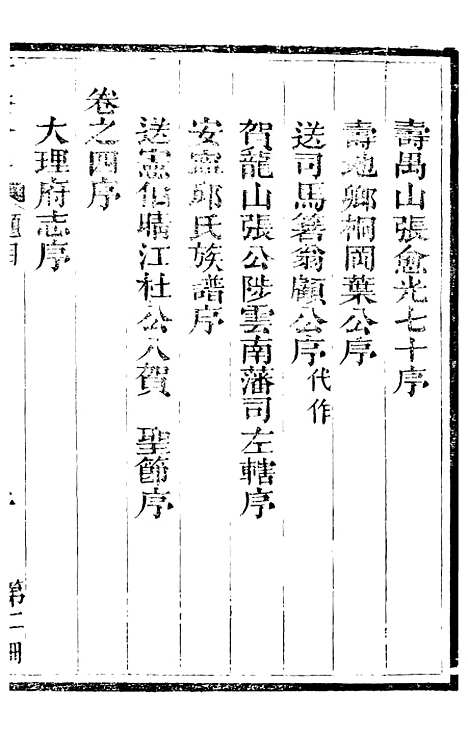 壽禺山張愈光七十序
壽地卿桐岡葉公序
送司馬箬翁顧公序代作
賀龍山張公陟雲南藩司左轄序
安寧邱氏族譜序
送憲伯晴江杜公入賀 聖節序
卷之四序
大理府志序
題目
第二冊